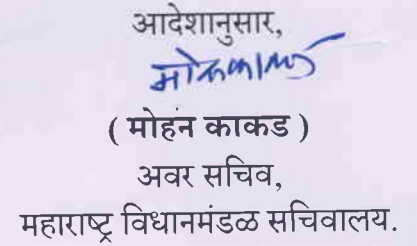 आदेशानुसार,
( मोहन काकड )
अवर सचिव,
महाराष्ट्र विधानमंडळ सचिवालय.